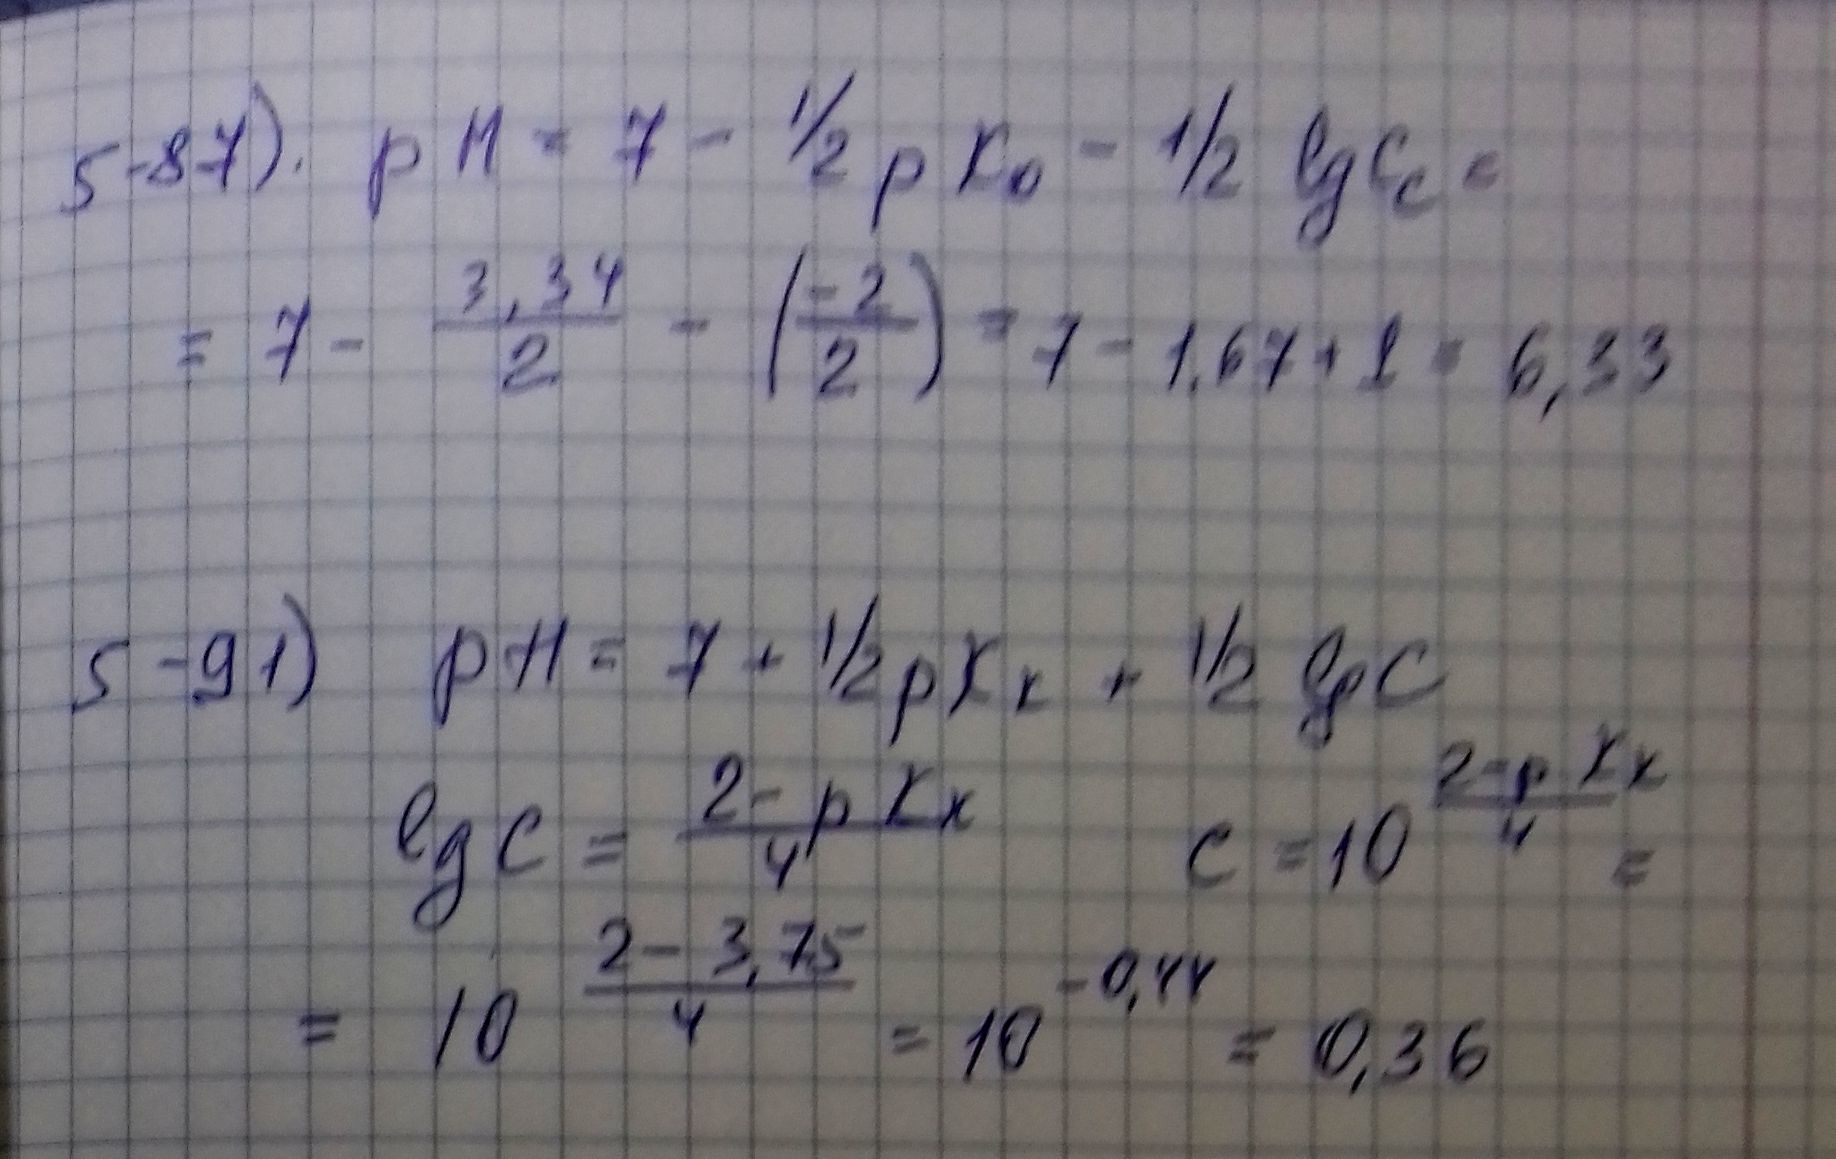 5-87). pH = 7 - 1/2 pKo - 1/2 lgCc =
= 7 - 3,34/2 - (-2/2) = 7 - 1,67 + 1 = 6,33
5-91) pH = 7 + 1/2 pKк + 1/2 lgC
lgC = (2 - pKк)/4 C = 10^((2-pKк)/4) =
= 10^((2 - 3,75)/4) = 10^(-0,44) = 0,36